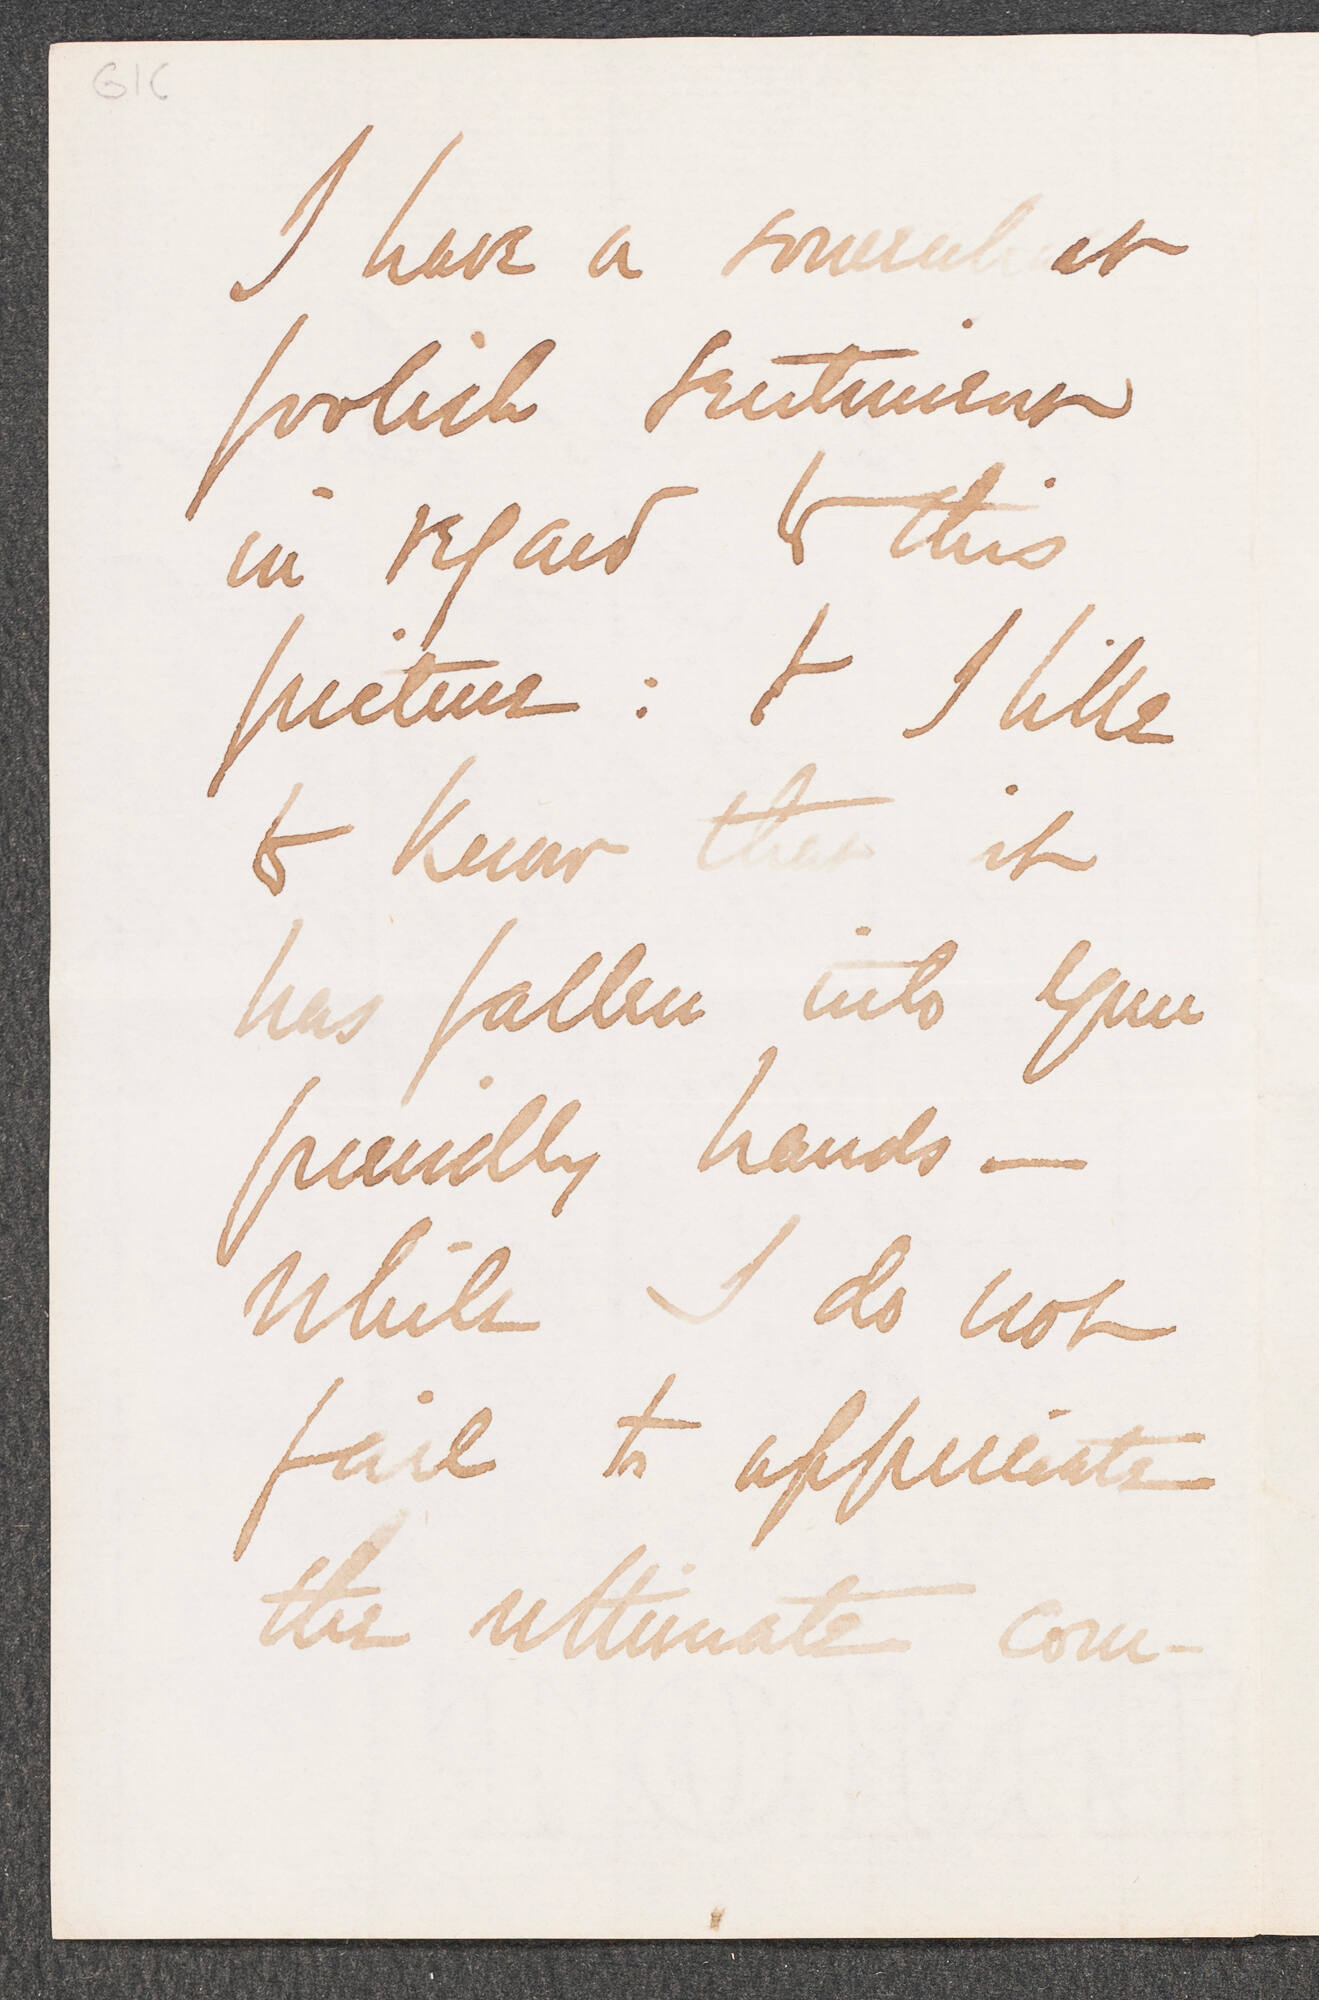 G1C
I have a somewhat
foolish sentiment
in regard to this
picture : & I like
to know that it
has fallen into your
friendly hands —
While I do not
fail to appreciate
the ultimate com-